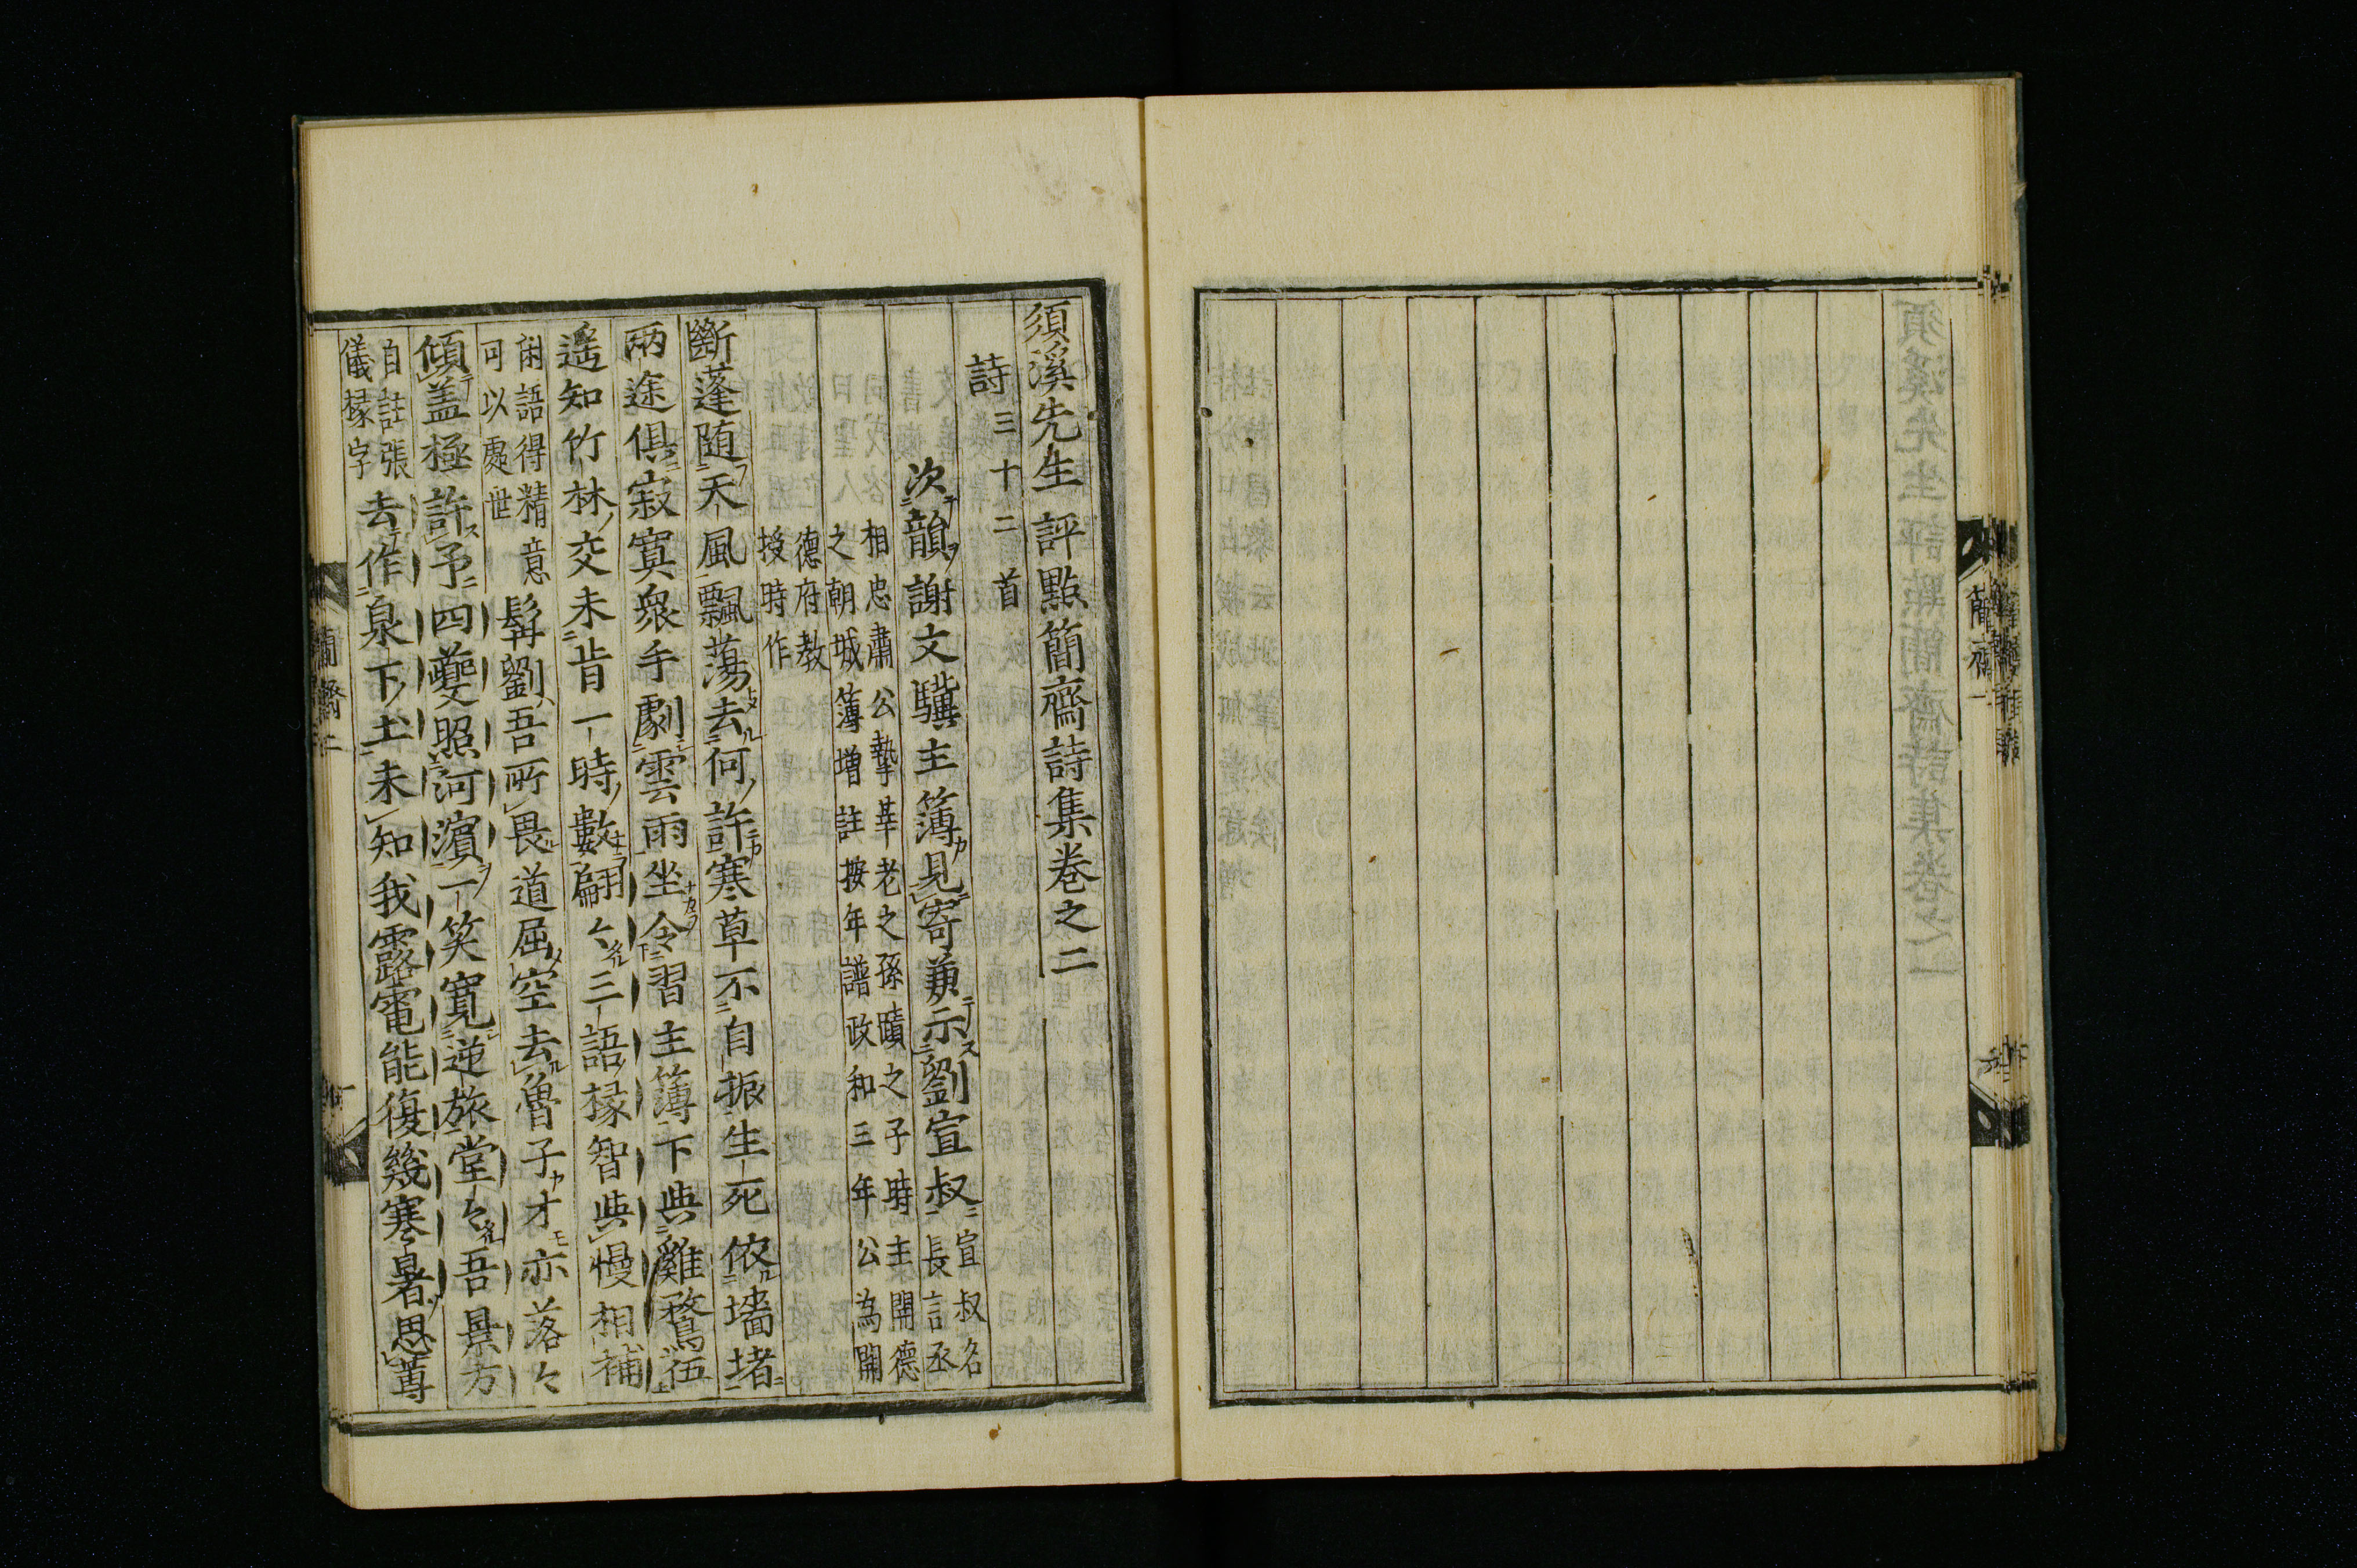 須溪先生評點簡齋詩集卷之二
詩三十二首
次韻謝文驥主簿見寄兼示劉宣叔
宣叔名
長言丞
相忠肅公摯莘老之孫蹟之子時主開德
之朝城簿增註按年譜政和三年公為開
德府教
授時作
斷蓬随天風飄蕩去何許寒草不自振生死依墻堵
兩途俱寂寞衆手劇雲雨坐令習主簿下與雞鶩伍
遙知竹林交未肯一時數翩々三語掾智與慢相補
閑語得精意
可以處世
髯劉吾所畏道屈空去魯子才亦落々
傾盖極許予四夔照河濱一笑寬逆旅堂々吾景方
自註張
儀掾字
去作泉下土未知我露電能復幾寒暑思蓴
簡齋二
簡齋一